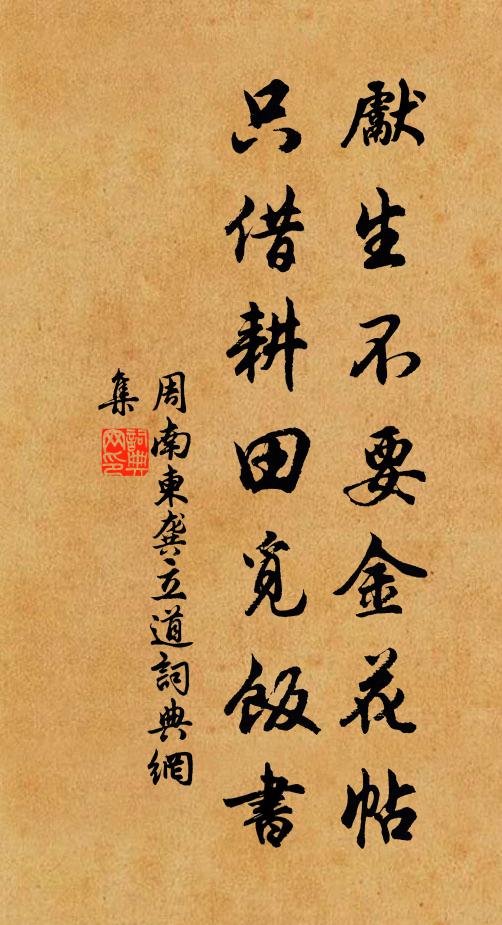 獻生不要金花帖
只借耕田覓飯書
周南東龔立道詞典網
集
詞典
网印